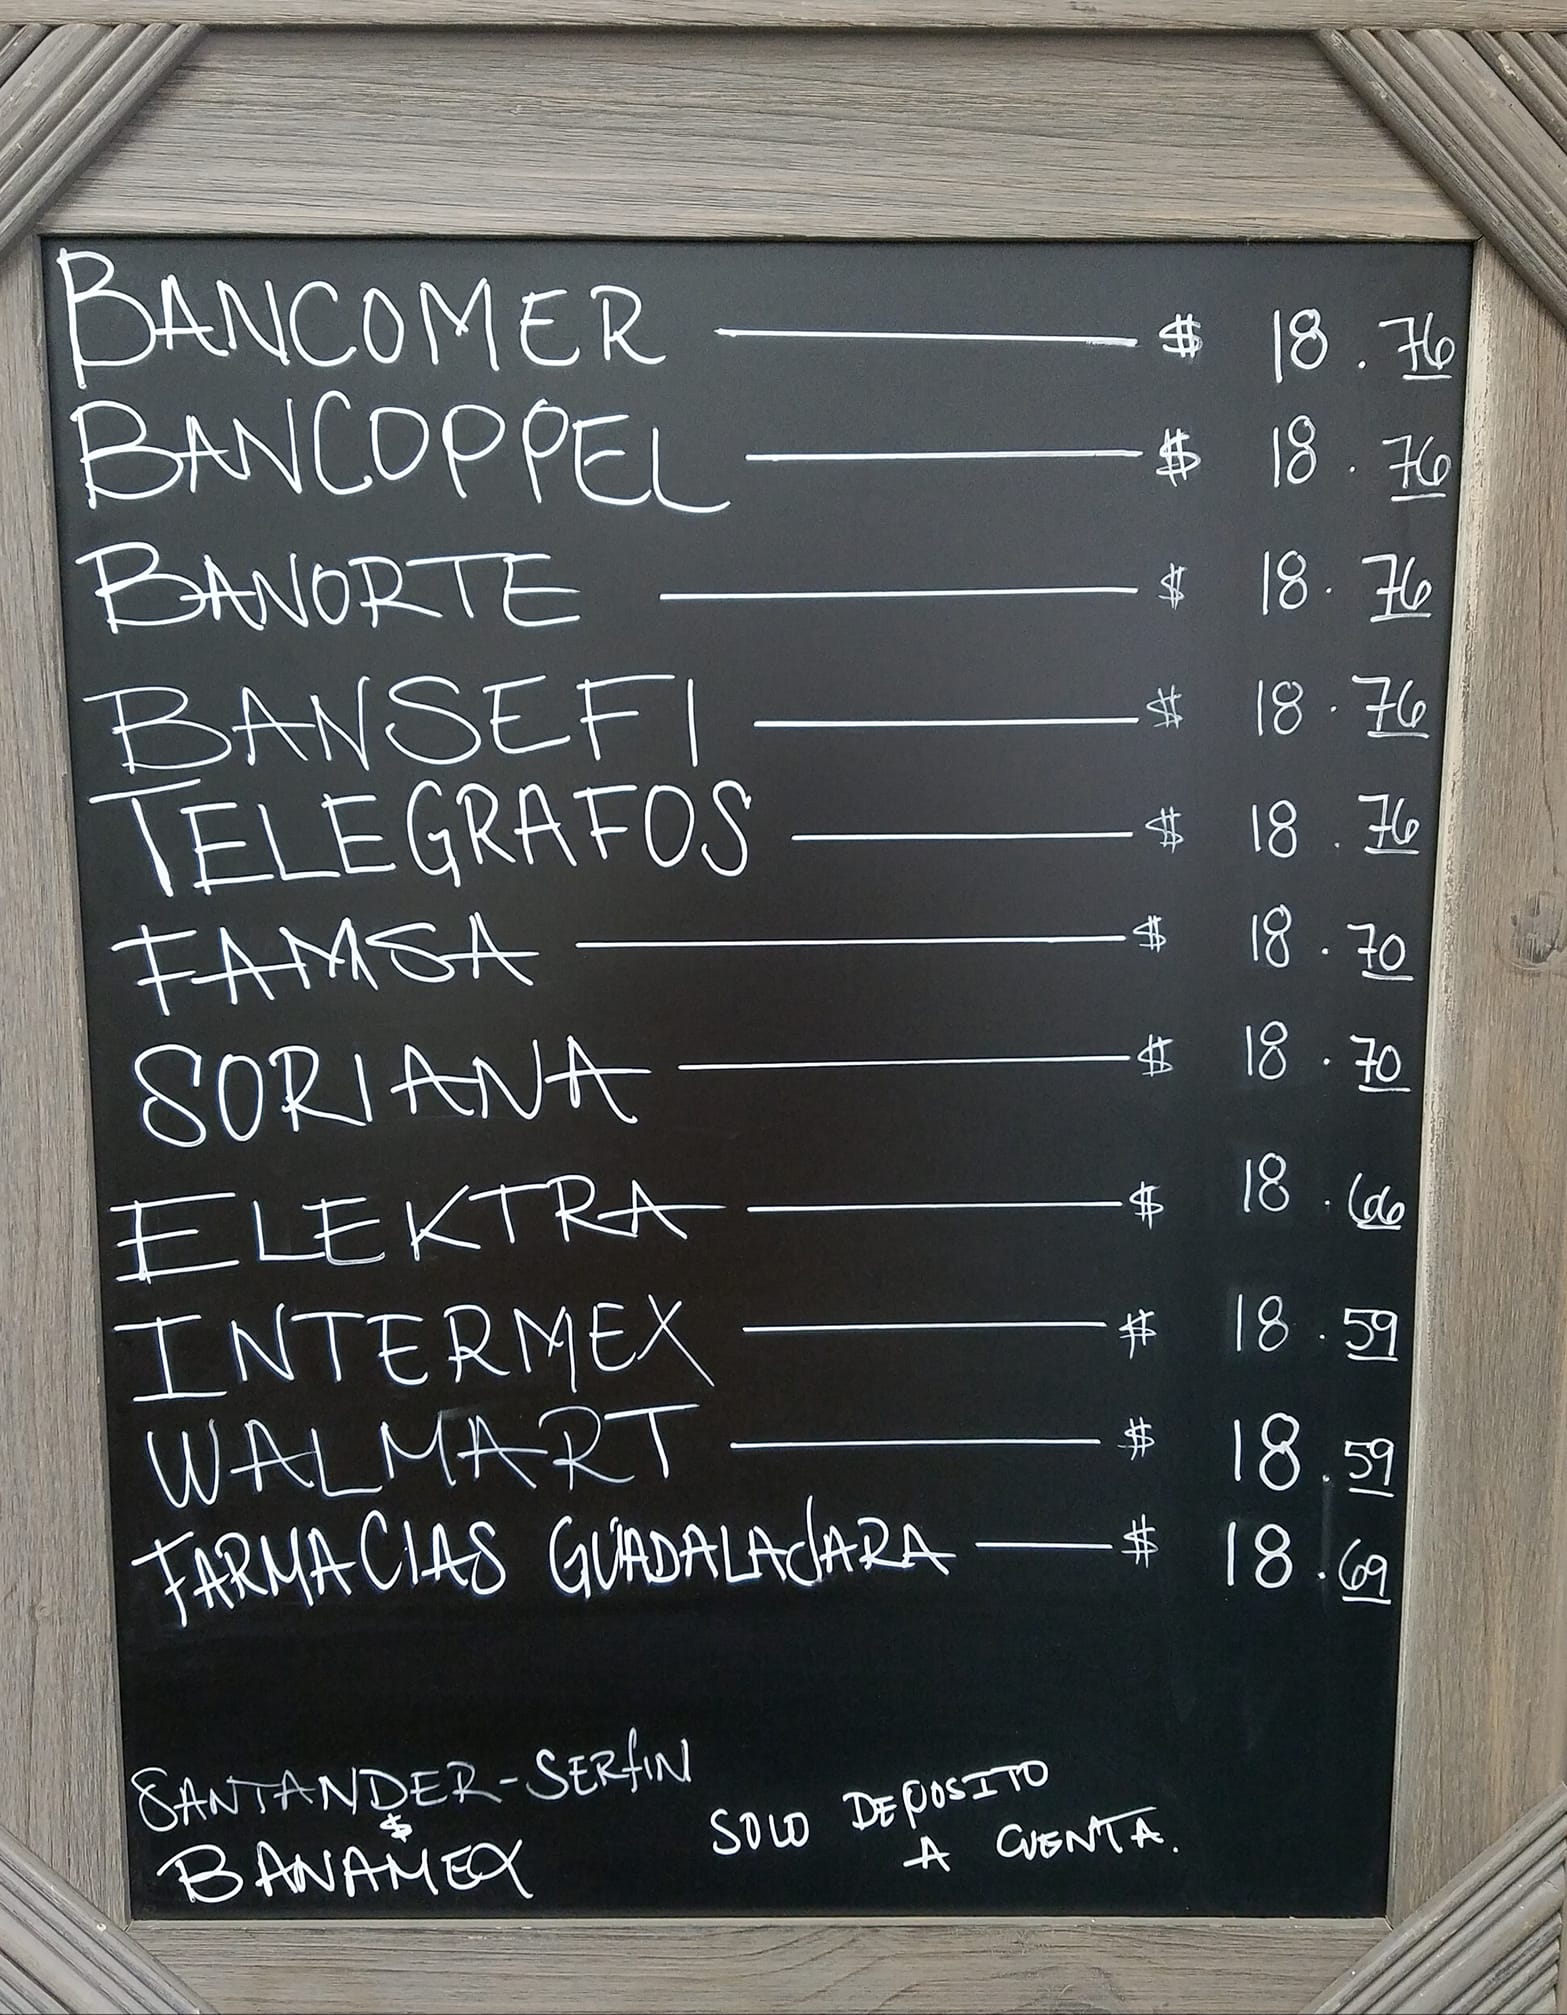 BANCOMER $ 18.76
BANCOPPEL $ 18.76
BANORTE $ 18.76
BANSEFI $ 18.76
TELEGRAFOS $ 18.76
FAMSA $ 18.70
SORIANA $ 18.70
ELEKTRA $ 18.66
INTERMEX $ 18.59
WALMART $ 18.59
FARMACIAS GUADALAJARA $ 18.69
SANTANDER-SERFIN
$
BANAMEX
SOLO DEPOSITO
A CUENTA.